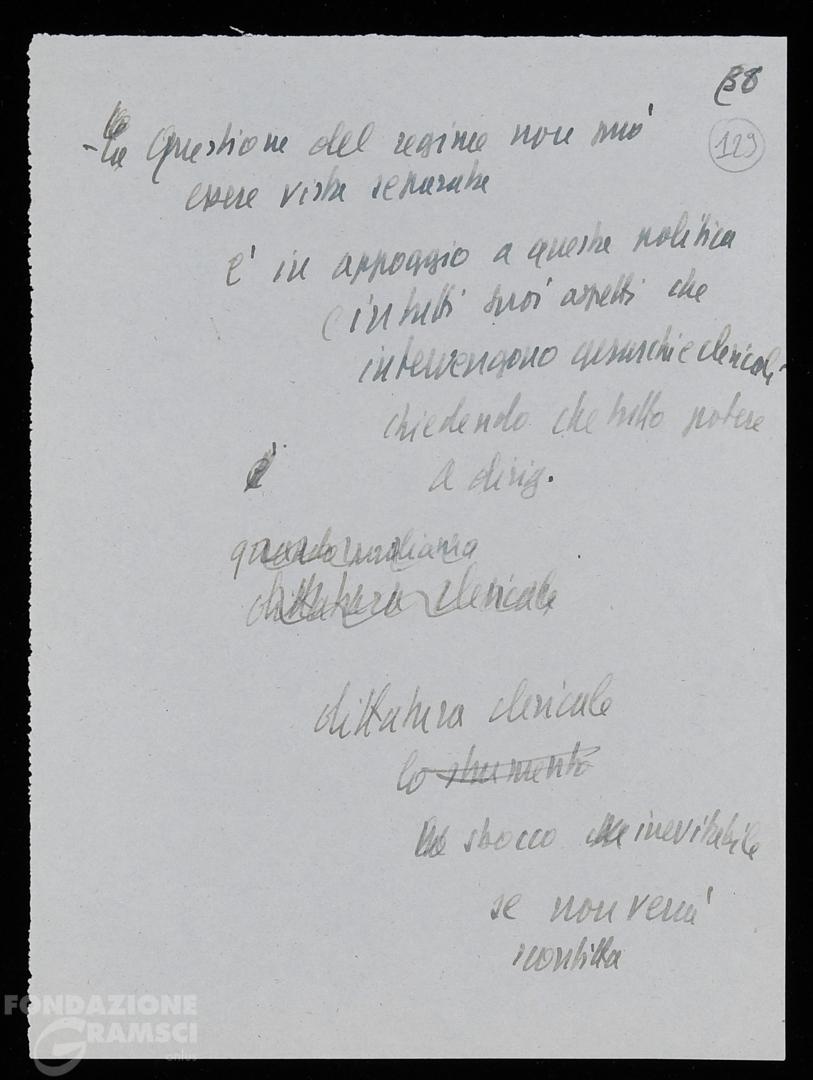 38
129
- La Questione del regime non può
essere vista separata
è in appoggio a questa politica
e in tutti suoi aspetti che
intervengono gerarchie clericali
chiedendo che tutto potere
a dirig.
è
dittatura clericale
dittatura clericale
lo strumento
lo sbocco inevitabile
se non verrà
sconfitta
FONDAZIONE
GRAMSCI
onlus